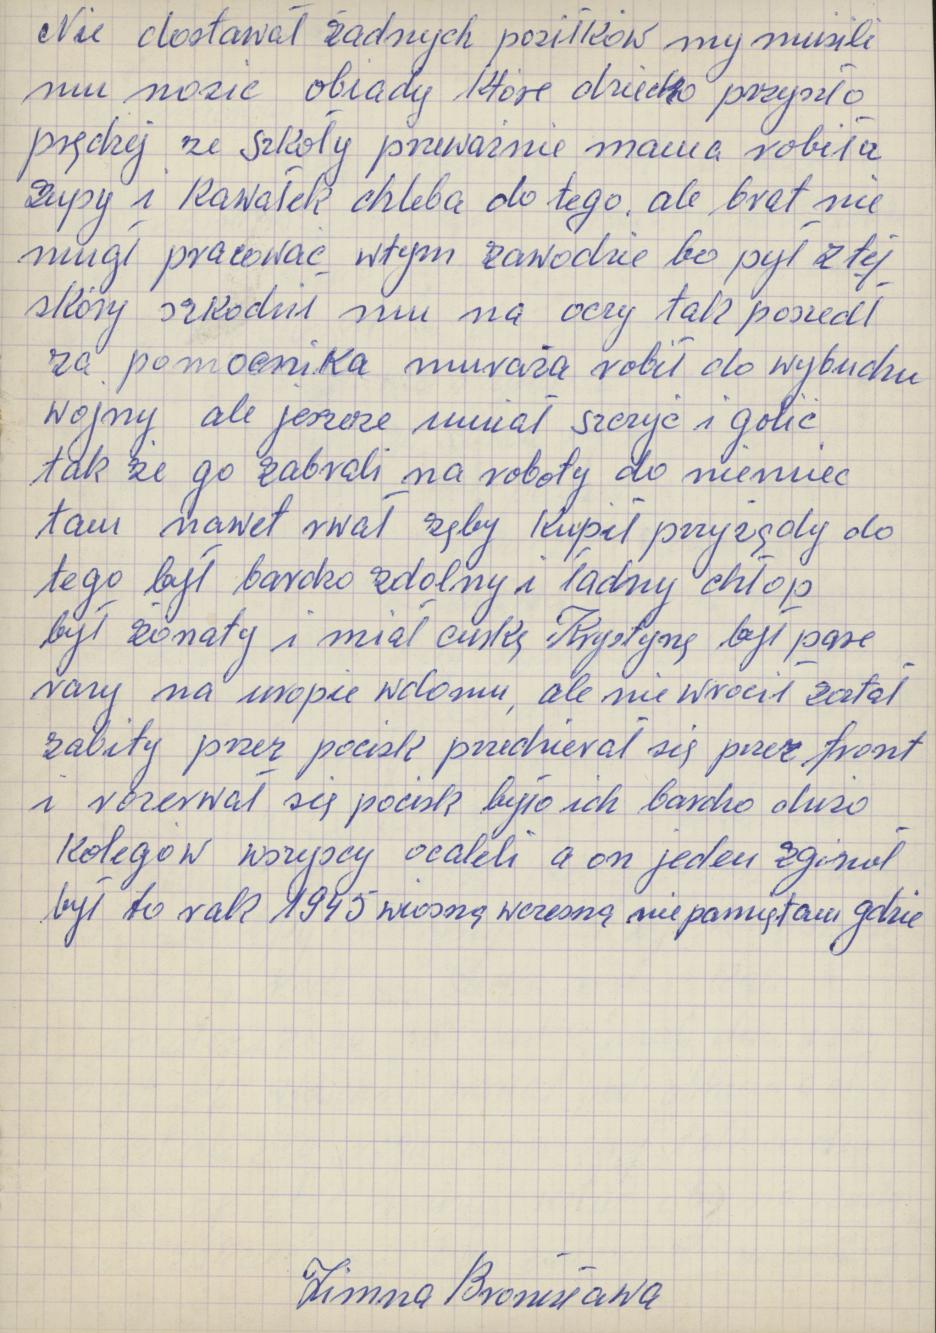 Nie dostawał żadnych posiłków my musili
mu nosic obiady które dziecko przyszło
prędzej ze szkoły przeważnie mama robiła
zupy i kawałek chleba do tego. ale brat nie
mugł pracować wtym zawodzie bo pył z tej
skóry szkodził mu na oczy tak poszedł
za pomocnika muraża robił do wybuchu
wojny ale jeszcze umiał szczyć i golić
tak że go zabrali na roboty do niemiec
tam nawet rwał zęby kupił przyżądy do
tego był bardzo zdolny i ładny chłop
był żonaty i miał curkę Krystynę był pare
razy na uropie wdomu, ale nie wrocił został
zabity przez pocisk przedzierał się przez front
i rozerwał się pocisk było ich bardzo dużo
kolegów wszyscy ocaleli a on jeden zginoł
był to rok 1945 wiosną wczesną nie pamiętam gdzie
Zimna Bronisława